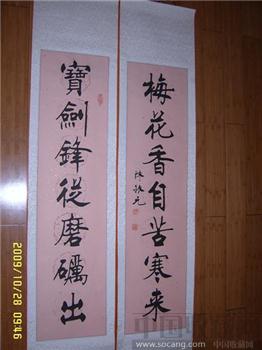 寶劍鋒從磨礪出
梅花香自苦寒來
2009/10/28 09:46
中国收藏网
www.socang.com 中国收藏网